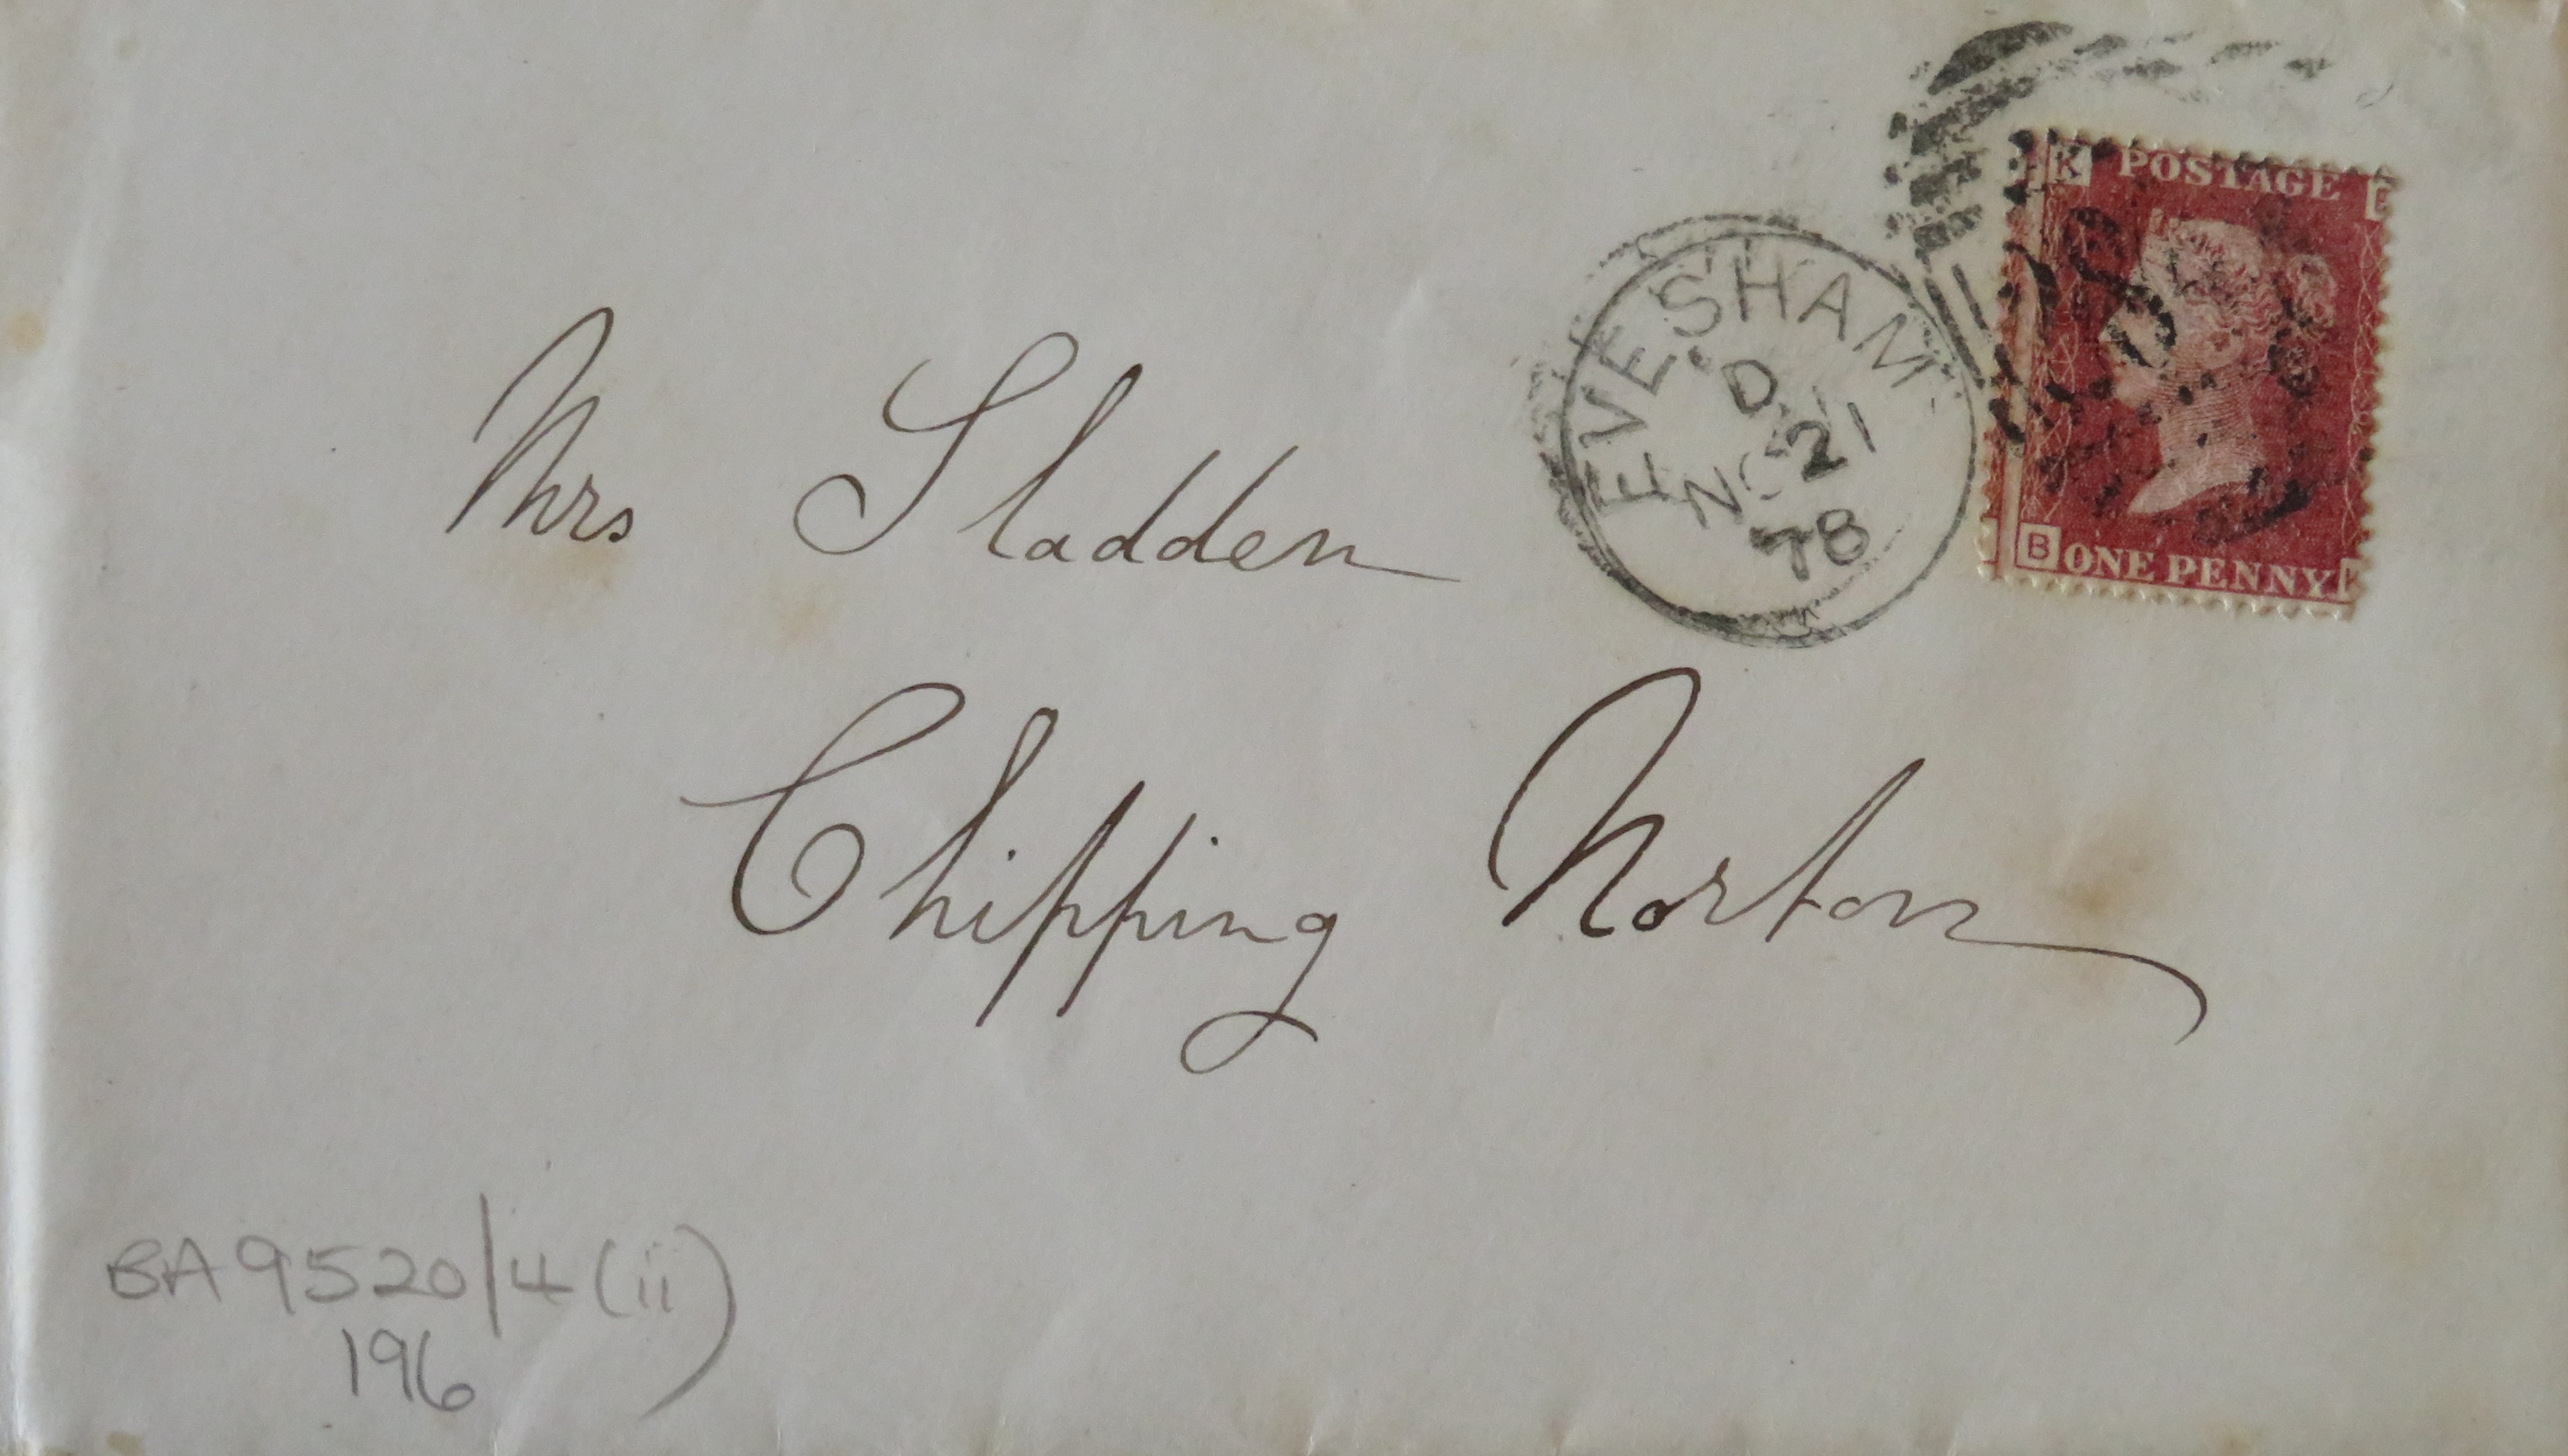 K POSTAGE
EVESHAM
D
NO 21
78
B ONE PENNY
Mrs Sladden
Chipping Norton
BA 9520/4 (ii)
196